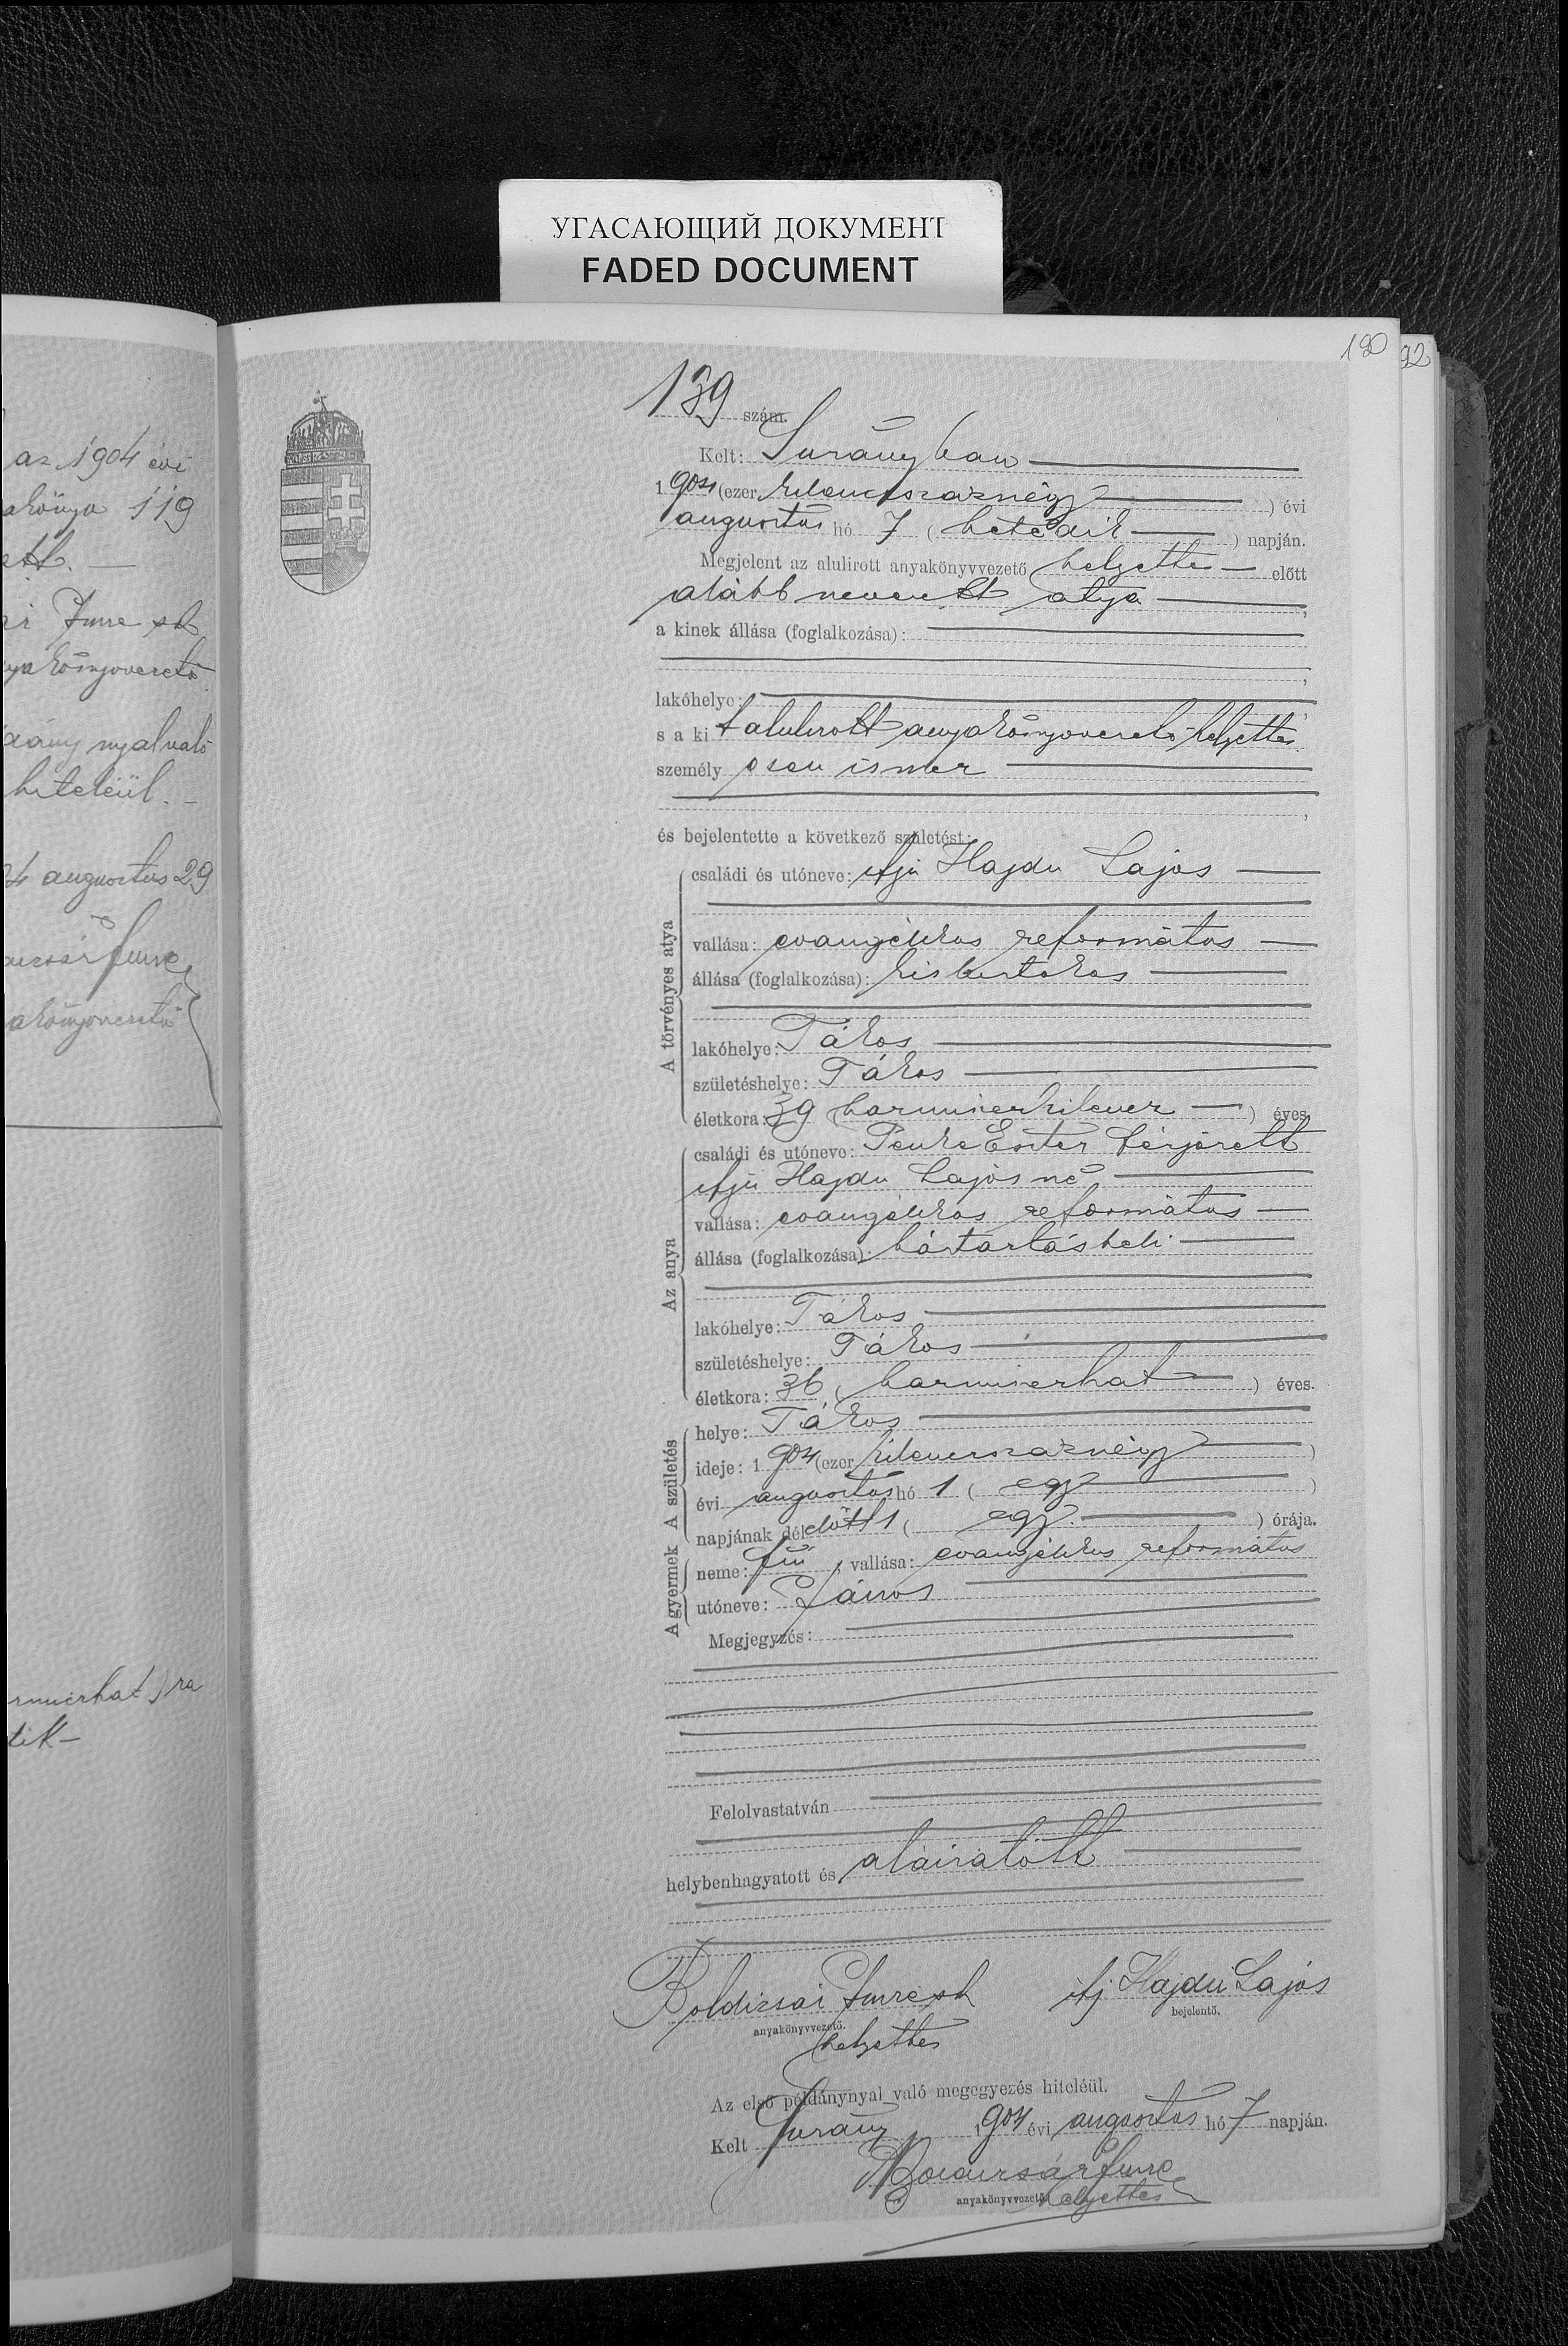 УГАСАЮЩИЙ ДОКУМЕНТ
FADED DOCUMENT
190
92
az 1904 évi
119
Imre sk
nyalvaló
hiteléül. -
augusztus 29
Imre
139 szám.
Kelt: Surányban
1904 (ezer kilenczszáznégy ) évi
augusztus hó 7 ( hetedik ) napján.
Megjelent az alulirott anyakönyvvezető helyettes előtt
alább nevezett atya ,
a kinek állása (foglalkozása):
,
lakóhelye:
s a kit alulirott anyakönyvvezető-helyettes
személyesen ismer
,
és bejelentette a következő születést:
A törvényes atya
családi és utóneve: ifju Hajdu Lajos
vallása: evangélikus református
állása (foglalkozása): kisbirtokos
lakóhelye: Tákos
születéshelye: Tákos
életkora: 39 (harminczkilencz ) éves.
Az anya
családi és utóneve: Eszter férjezett
ifju Hajdu Lajosné
vallása: evangélikus református
állása (foglalkozása): háztartásbeli
lakóhelye: Tákos
születéshelye: Tákos
életkora: 36 ( harminczhat ) éves.
A születés
helye: Tákos
ideje: 1904 (ezer kilenczszáznégy )
évi augusztus hó 1 ( egy )
napjának délelőtt 1 ( egy. ) órája.
A gyermek
neme: fiú , vallása: evangélikus református
utóneve: János
Megjegyzés:
Felolvastatván
helybenhagyatott és aláiratott
Boldizsár Imre sk ifj Hajdu Lajos
anyakönyvvezető. bejelentő.
helyettes
Az első példánynyal való megegyezés hiteléül.
Kelt Surány 1904 évi augusztus hó 7 napján.
Imre
anyakönyvvezető helyettes